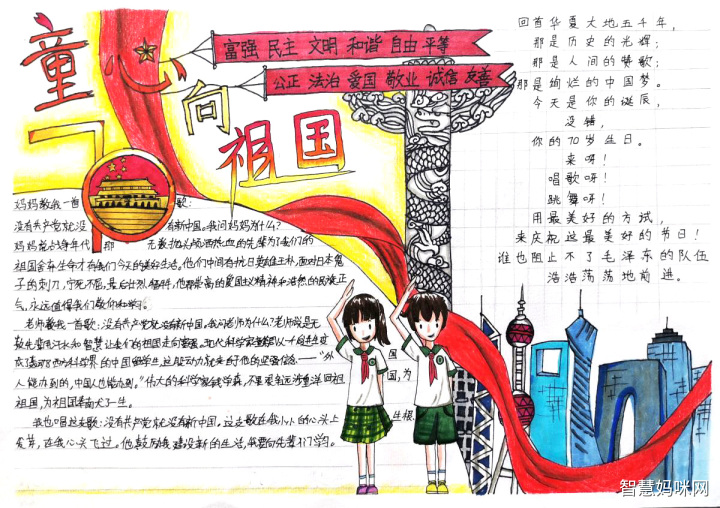 童
心
向
祖
国
富强 民主 文明 和谐 自由 平等
公正 法治 爱国 敬业 诚信 友善
回首华夏大地五千年，
那是历史的光辉；
那是人间的赞歌；
那是绚烂的中国梦。
今天是你的诞辰，
没错，
你的70岁生日。
来呀！
唱歌呀！
跳舞呀！
用最美好的方试，
来庆祝这最美好的节日！
谁也阻止不了毛泽东的队伍
浩浩荡荡地前进。
妈妈教我一首 歌：
没有共产党就没 有新中国。我问妈妈为什么？
妈妈说战争年代 那 无数抛头颅洒热血的先辈为了我们的
祖国舍弃生命才有我们今天的美好生活。他们中间有抗日英雄王朴，面对日本鬼
子的刺刀，宁死不屈，最后壮烈牺牲，他那崇高的爱国主义精神和浩然的民族正
气，永远值得我们敬仰和学习。
老师教我一首歌：没有共产党就没有新中国。我问老师为什么？老师说是无
数先辈用汗水和智慧让我们的祖国走向富强。现代科学家
的中国留学生，这股动力就来自于他的坚强信念——“外 国
人能办到的，中国人也能办到。”伟大的科学家钱学森，不 回祖 国，为
祖国，为祖国奉献了一生。
我也唱这支歌：没有共产党就没有新中国。这支歌在我小小的心头上 生根
发芽，在我心头飞过。他鼓励我建设新的生活，我要向先辈们学习。
智慧妈咪网